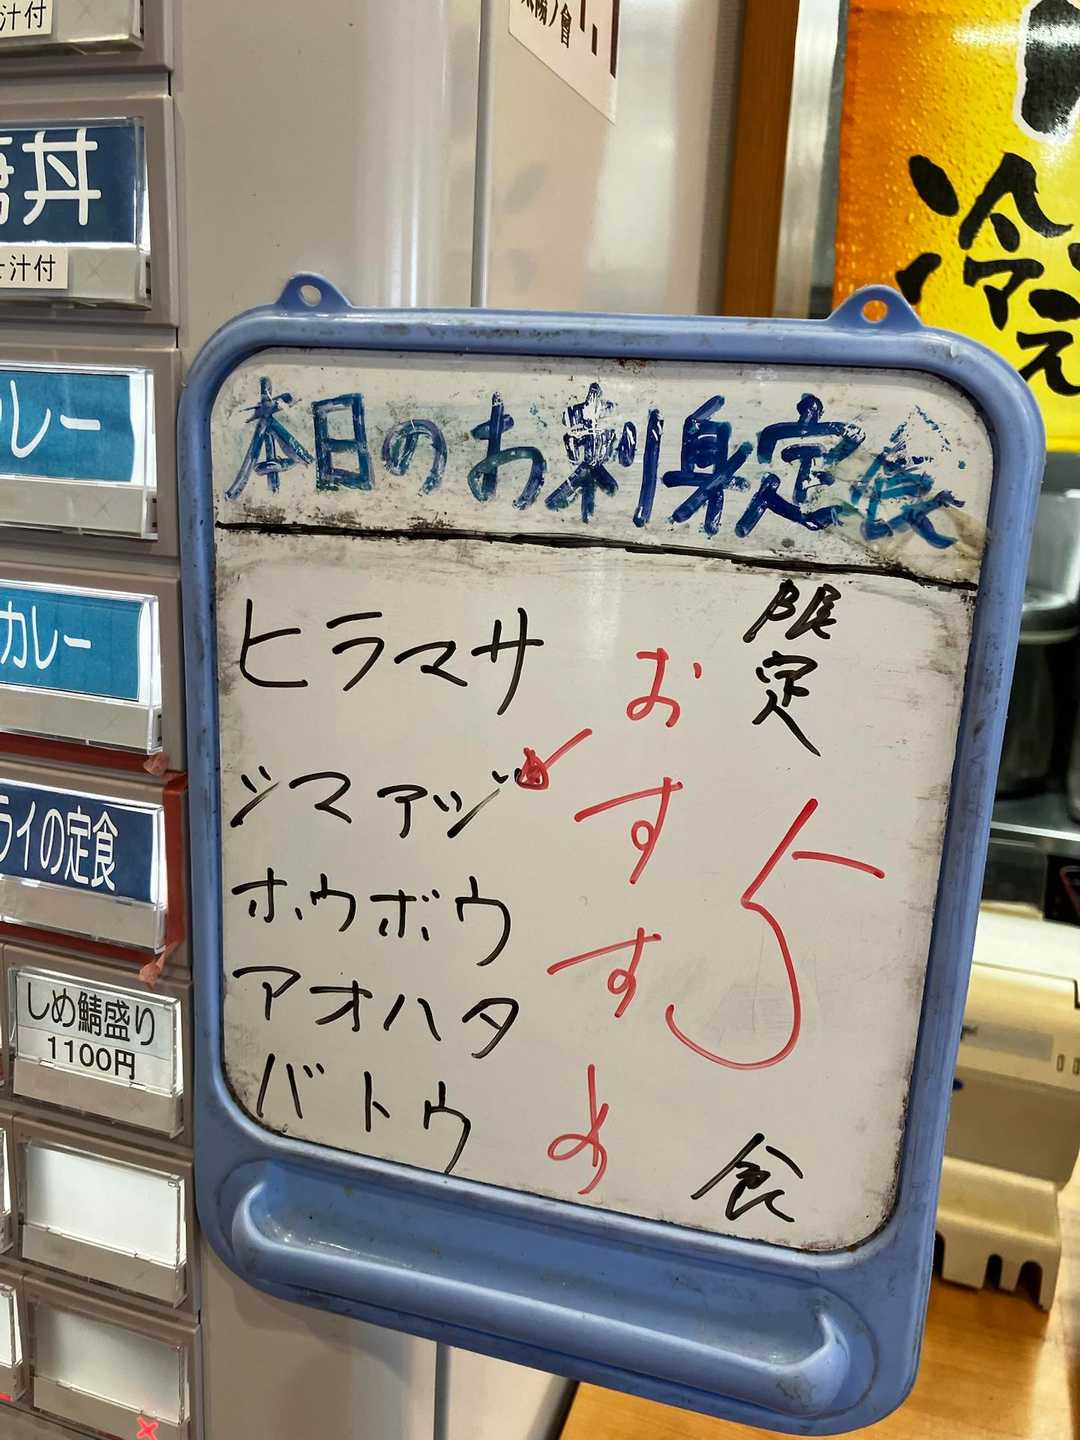 汁付
丼
汁付
レー
カレー
ライの定食
しめ鯖盛り
1100円
冷え
本日のお刺身定食
ヒラマサ
シマアジ
ホウボウ
アオハタ
バトウ
おすすめ
限定
5
食